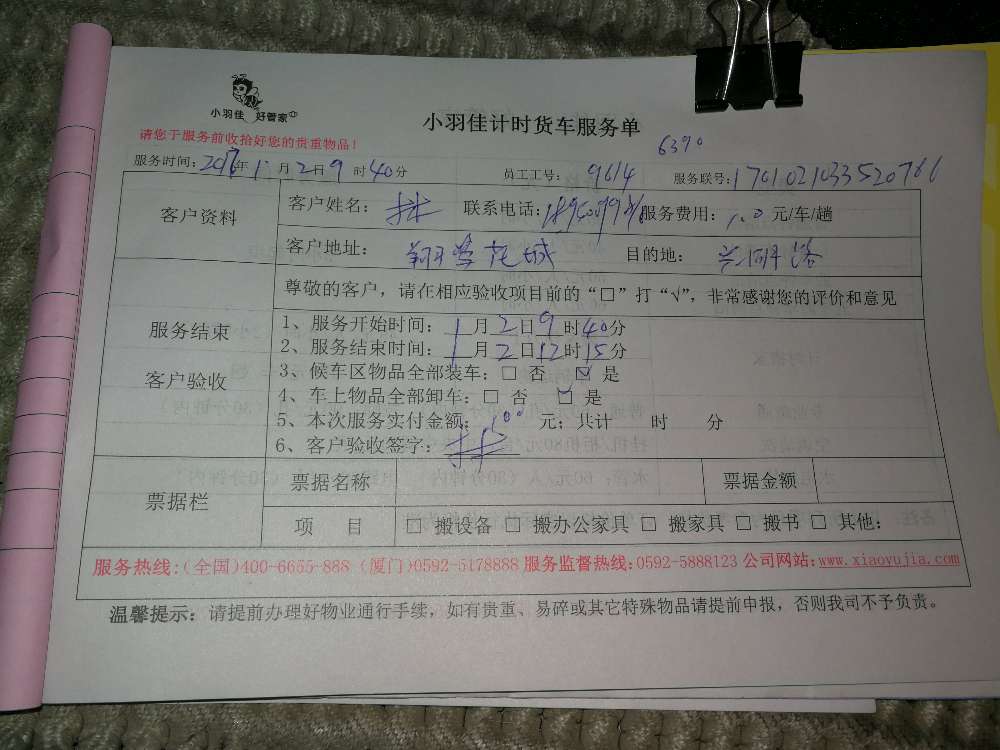 小羽佳 好管家
小羽佳计时货车服务单
请您于服务前收拾好您的贵重物品!
6390
服务时间:2017年1月2日9时40分 员工工号:9614 服务联号:1701021033520766
客户资料 客户姓名:林 联系电话: 服务费用:100元/车/趟
客户地址:翔鹭花城 目的地:
尊敬的客户,请在相应验收项目前的“□”打“√”,非常感谢您的评价和意见
服务结束
客户验收
1、服务开始时间:1月2日9时40分
2、服务结束时间:1月2日12时15分
3、候车区物品全部装车:□ 否 ☑ 是
4、车上物品全部卸车:□ 否 ☑ 是
5、本次服务实付金额:100元;共计 时 分
6、客户验收签字:林
票据栏 票据名称 票据金额
项 目 □ 搬设备 □ 搬办公家具 □ 搬家具 □ 搬书 □ 其他:
服务热线:(全国)400-6655-888 (厦门)0592-5178888 服务监督热线:0592-5888123 公司网站:www.xiaoyujia.com
温馨提示:请提前办理好物业通行手续,如有贵重、易碎或其它特殊物品请提前申报,否则我司不予负责。